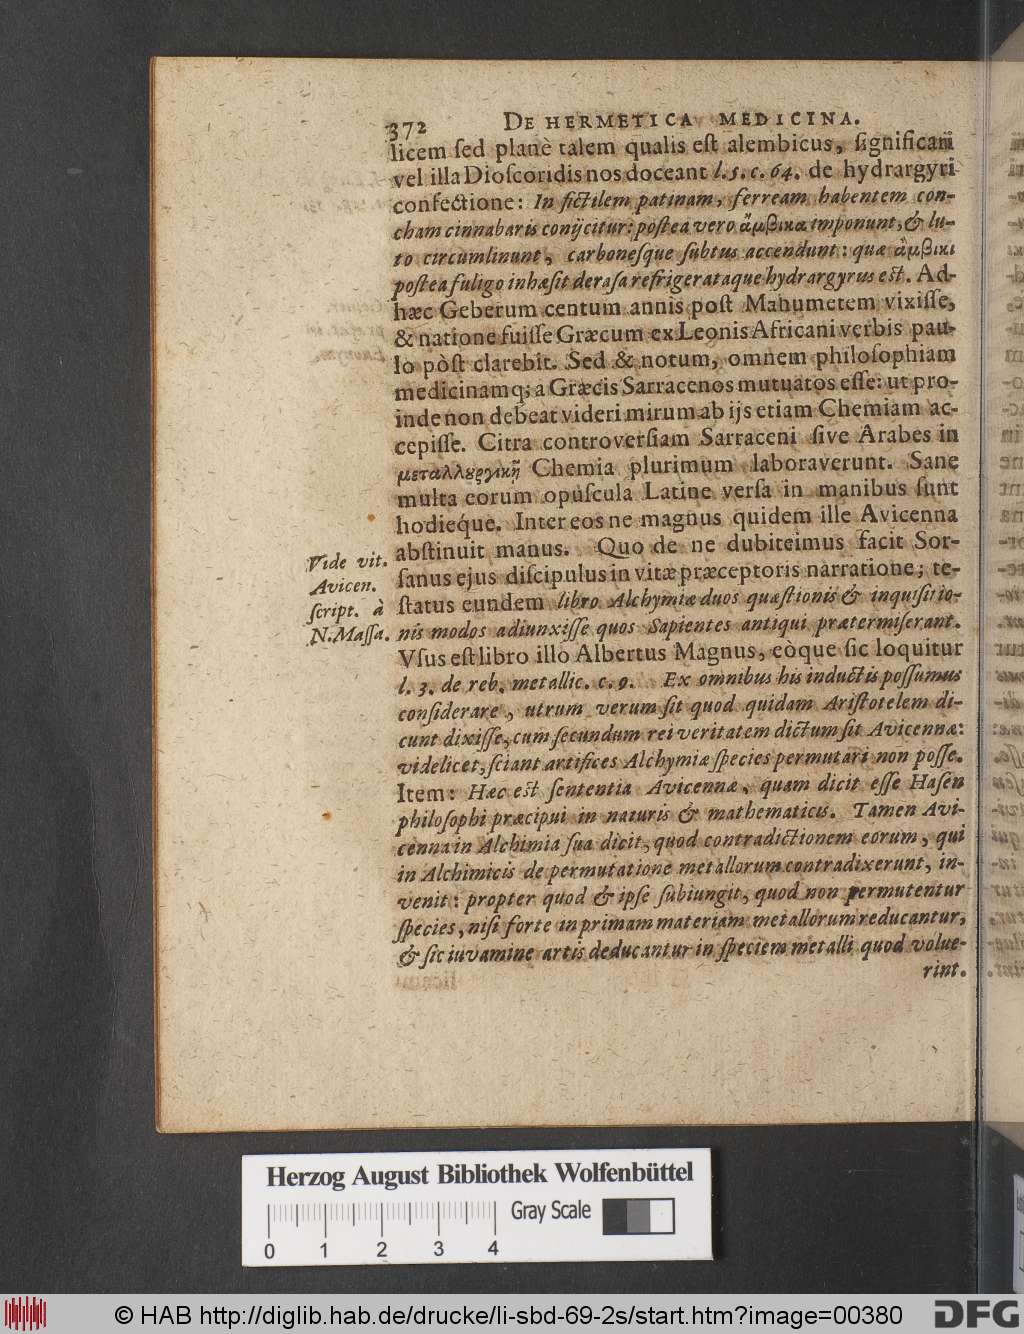 372 DE HERMETICA MEDICINA.
licem ſed planè talem qualis eſt alembicus, ſignificari
vel illa Dioſcoridis nos doceant l. 5. c. 64. de hydrargyri
confectione: In fictilem patinam, ferream habentem con-
cham cinnabaris conijcitur: poſtea vero ἄμβικα imponunt, & lu-
to circumlinunt, carboneſque ſubtus accendunt: quæ ἄμβικι
poſtea fuligo inhæſit deraſa refrigerataque hydrargyrus est. Ad-
hæc Geberum centum annis poſt Mahumetem vixiſſe,
& natione fuiſſe Græcum ex Leonis Africani verbis pau-
lo pòſt clarebit. Sed & notum, omnem philoſophiam
medicinamq; a Græcis Sarracenos mutuatos eſſe: ut pro-
inde non debeat videri mirum ab ijs etiam Chemiam ac-
cepiſſe. Citra controverſiam Sarraceni ſive Arabes in
μεταλλουργικῇ Chemia plurimum laboraverunt. Sane
multa eorum opuſcula Latine verſa in manibus ſunt
hodieque. Inter eos ne magnus quidem ille Avicenna
abſtinuit manus. Quo de ne dubiteimus facit Sor-
ſanus ejus diſcipulus in vitæ præceptoris narratione; te-
ſtatus eundem libro Alchymiæ duos quæſtionis & inquiſitio-
nis modos adiunxiſſe quos Sapientes antiqui prætermiſerant.
Vſus eſt libro illo Albertus Magnus, eòque ſic loquitur
l. 3. de reb. metallic. c. 9. Ex omnibus his inductis poſſumus
conſiderare, utrum verum ſit quod quidam Ariſtotelem di-
cunt dixiſſe, cum ſecundum rei veritatem dictum ſit Avicennæ:
videlicet, ſciant artifices Alchymiæ ſpecies permutari non poſſe.
Item: Hæc est ſententia Avicennæ, quam dicit eſſe Haſen
philoſophi præcipui in naturis & mathematicis. Tamen Avi-
cenna in Alchimia ſua dicit, quod contradictionem eorum, qui
in Alchimicis de permutatione metallorum contradixerunt, in-
venit: propter quod & ipſe ſubiungit, quod non permutentur
ſpecies, niſi forte in primam materiam metallorum reducantur,
& ſic iuvamine artis deducantur in ſpeciem metalli quod volue-
rint.
Vide vit.
Avicen.
ſcript. à
N. Maſſa.
Herzog August Bibliothek Wolfenbüttel
Gray Scale
0 1 2 3 4
© HAB http://diglib.hab.de/drucke/li-sbd-69-2s/start.htm?image=00380
DFG